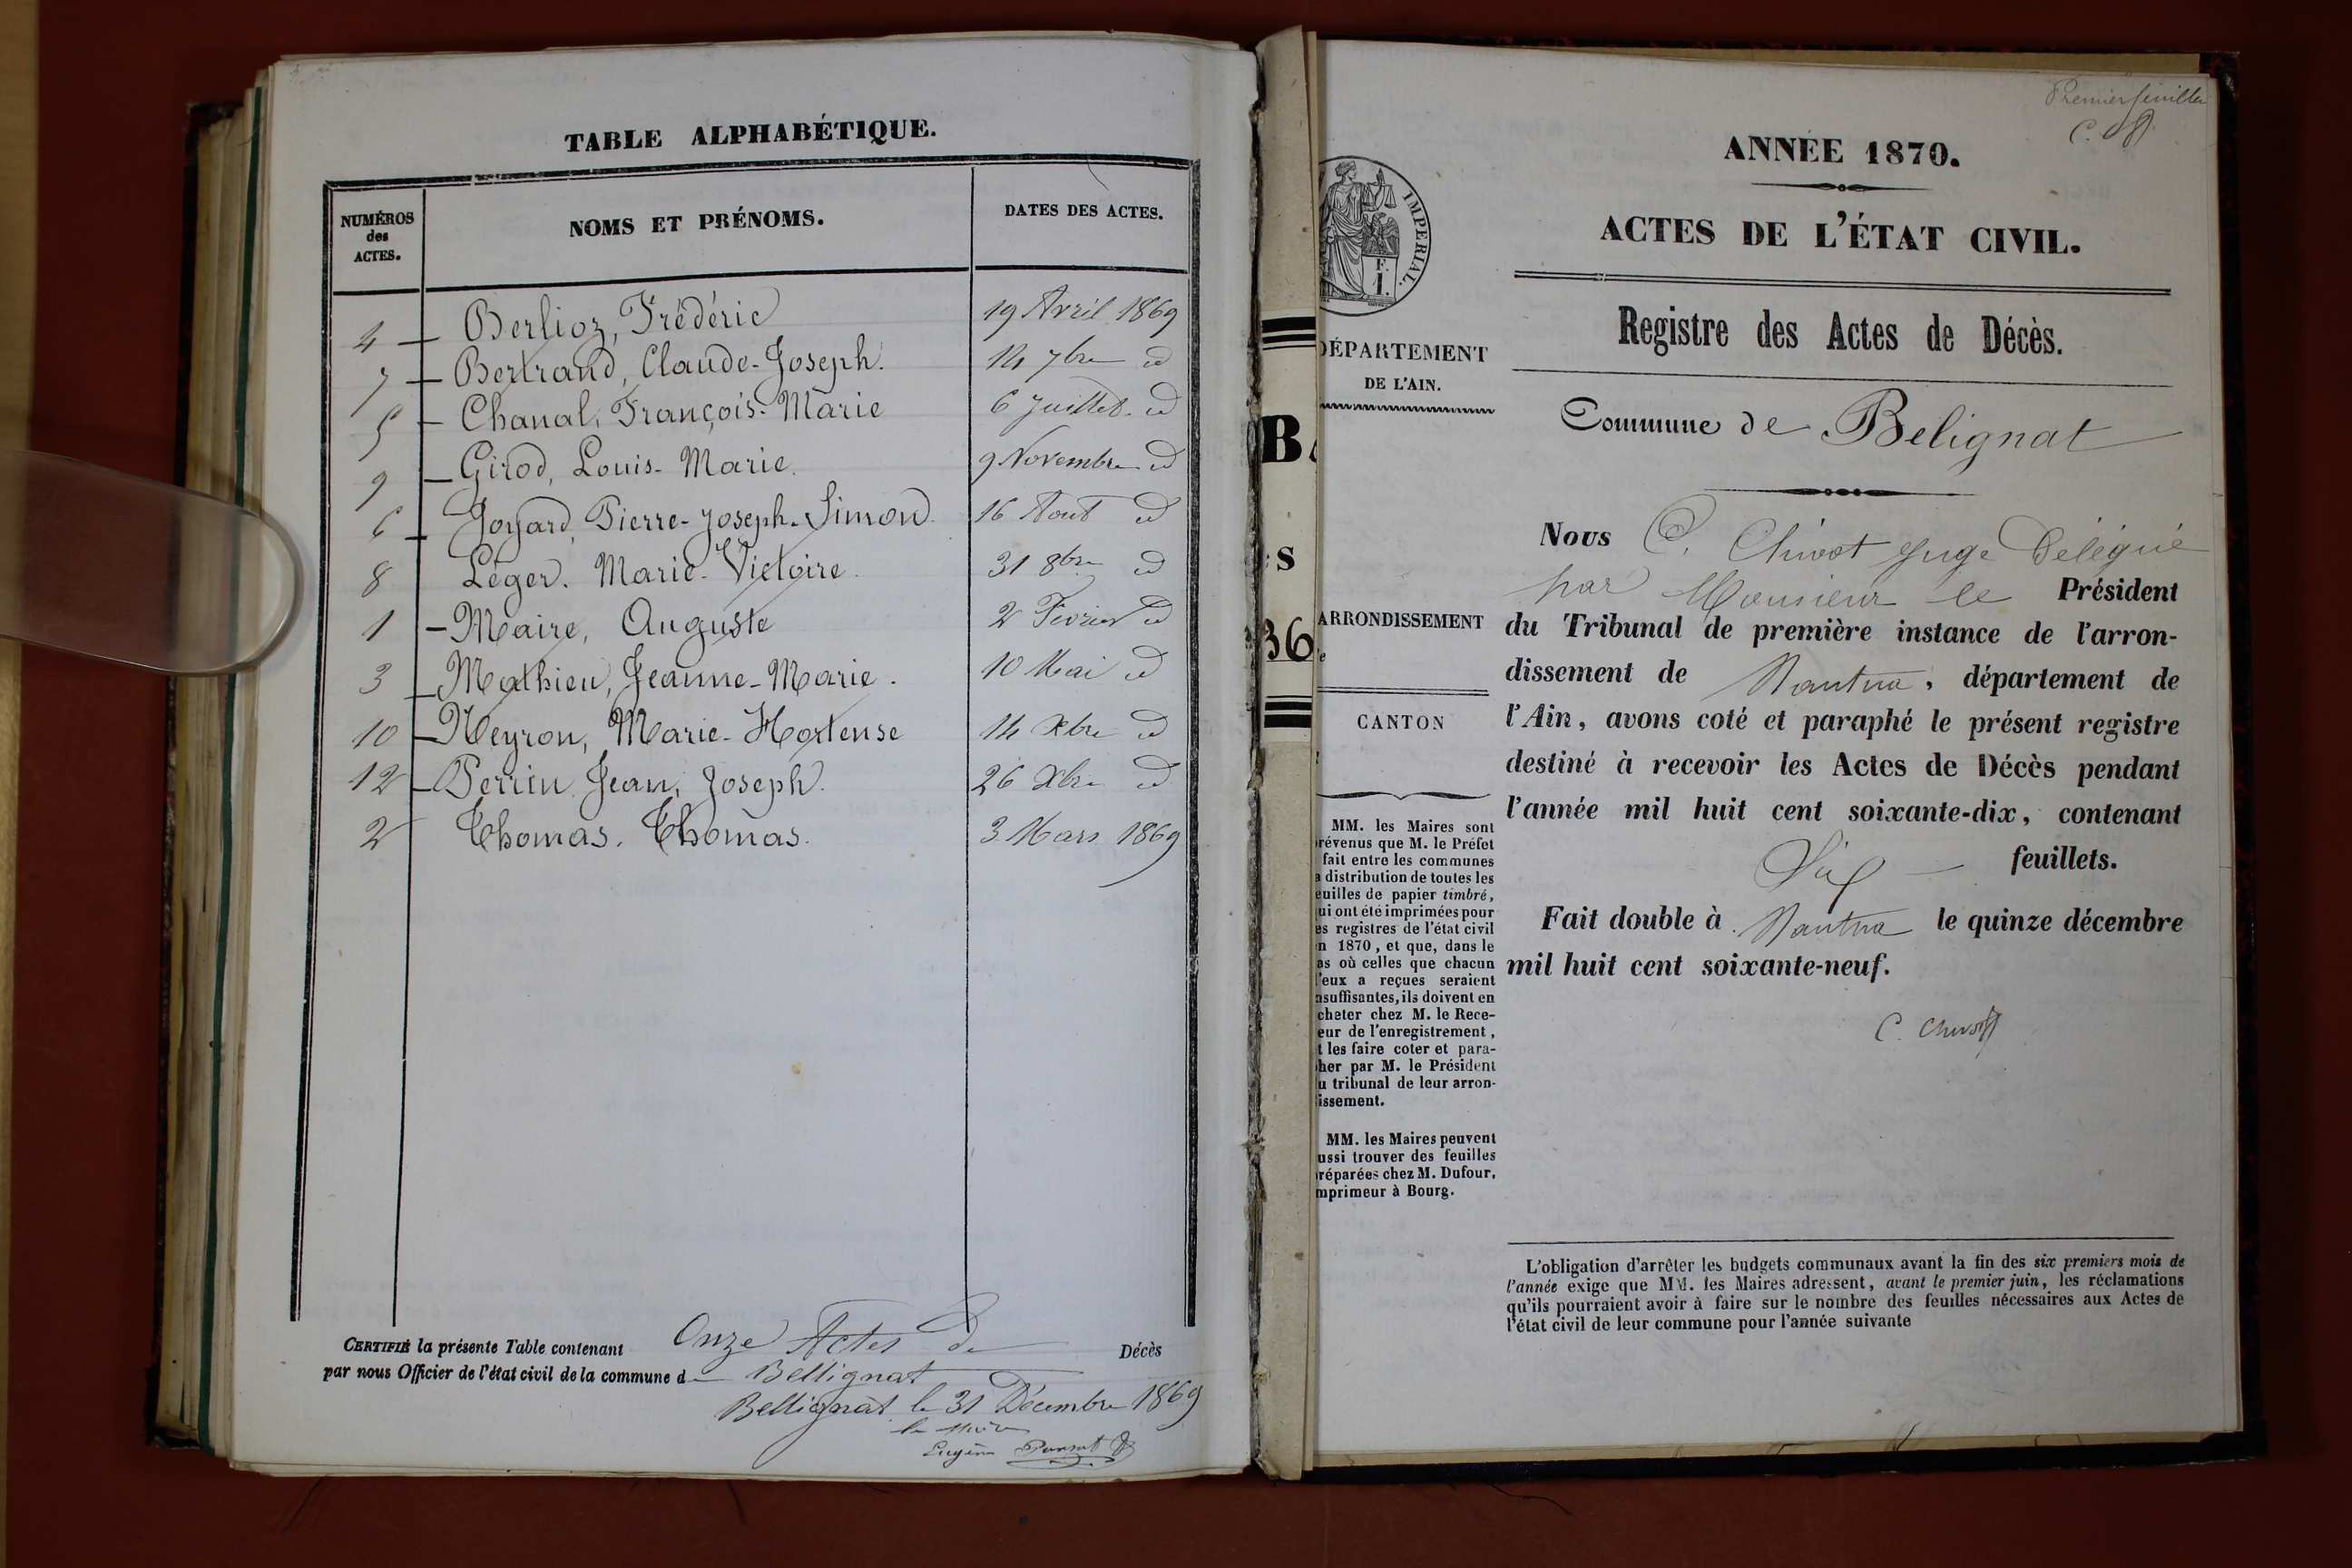 TABLE ALPHABÉTIQUE.
NUMÉROS des ACTES. NOMS ET PRÉNOMS. DATES DES ACTES.
4 — Berlioz, Frédéric 19 Avril 1869
7 — Bertrand, Claude-Joseph. 14 7bre id
5 — Chanal, François-Marie 6 Juillet id
9 — Girod, Louis-Marie. 9 Novembre id
6 — Joyard, Pierre-Joseph-Simon 16 Aout id
8 Léger. Marie-Victoire. 31 8bre id
1 — Maire, Auguste 2 Février id
3 — Mathieu, Jeanne-Marie. 10 Mai id
10 — Neyron, Marie-Hortense 14 Xbre id
12 — Perrin Jean, Joseph. 26 Xbre id
2 Thomas. Thomas. 3 Mars 1869
CERTIFIÉ la présente Table contenant Onze Actes de Décès
par nous Officier de l'état civil de la commune d Bellignat
Bellignat le 31 Décembre 1869
le Maire
Eugène
BA
s
36
Premier feuillet
ANNÉE 1870.
ACTES DE L'ÉTAT CIVIL.
IMPERIAL.
F.
1.
DÉPARTEMENT
DE L'AIN.
ARRONDISSEMENT
CANTON
MM. les Maires sont
révenus que M. le Préfet
fait entre les communes
a distribution de toutes les
euilles de papier timbré,
ui ont été imprimées pour
es registres de l'état civil
n 1870, et que, dans le
as où celles que chacun
'eux a reçues seraient
nsuffisantes, ils doivent en
cheter chez M. le Rece-
eur de l'enregistrement,
t les faire coter et para-
her par M. le Président
u tribunal de leur arron-
issement.
MM. les Maires peuvent
ussi trouver des feuilles
réparées chez M. Dufour,
mprimeur à Bourg.
Registre des Actes de Décès.
Commune de Belignat
Nous C. Chivot Juge Délégué
par Monsieur le Président
du Tribunal de première instance de l'arron-
dissement de Nantua, département de
l'Ain, avons coté et paraphé le présent registre
destiné à recevoir les Actes de Décès pendant
l'année mil huit cent soixante-dix, contenant
Six — feuillets.
Fait double à Nantua le quinze décembre
mil huit cent soixante-neuf.
C. Chivot
L'obligation d'arrêter les budgets communaux avant la fin des six premiers mois de
l'année exige que MM. les Maires adressent, avant le premier juin, les réclamations
qu'ils pourraient avoir à faire sur le nombre des feuilles nécessaires aux Actes de
l'état civil de leur commune pour l'année suivante